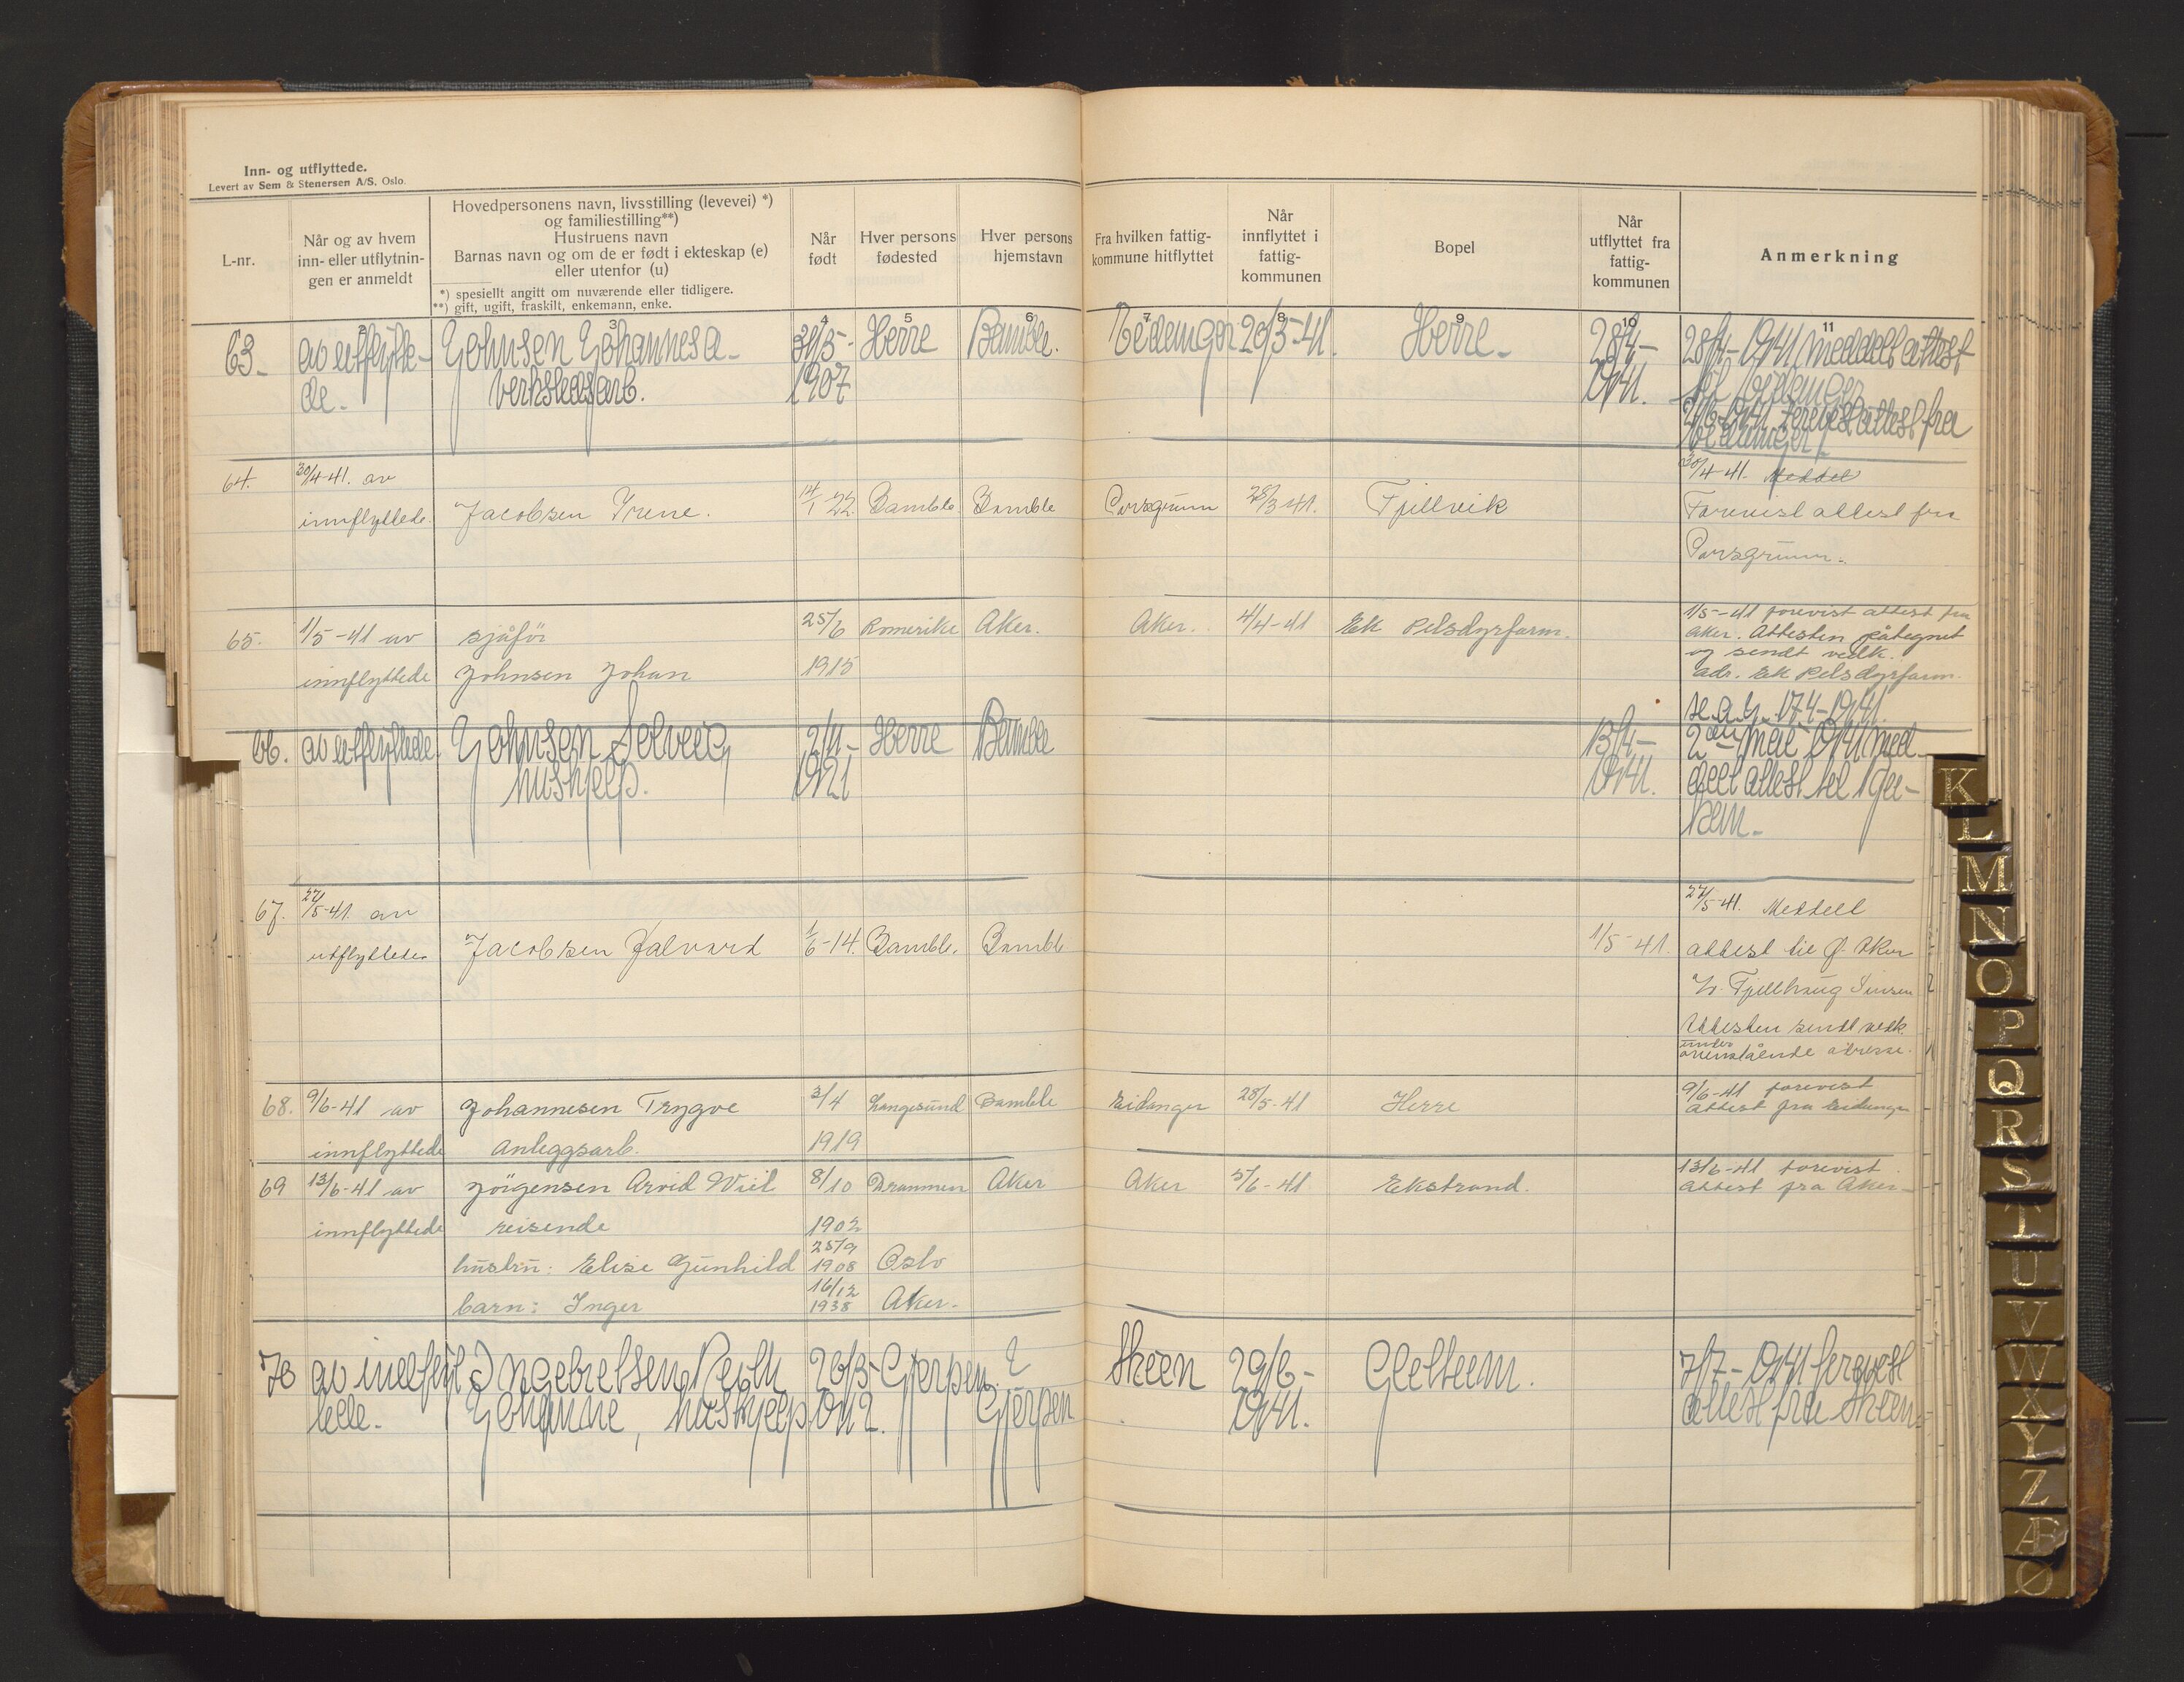 Inn- og utflyttede.
Levert av Sem & Stenersen A/S, Oslo.
L-nr.
Når og av hvem
inn- eller utflytnin-
gen er anmeldt
Hovedpersonens navn, livsstilling (levevei) *)
og familiestilling**)
Hustruens navn
Barnas navn og om de er født i ekteskap (e)
eller utenfor (u)
*) spesielt angitt om nuværende eller tidligere.
**) gift, ugift, fraskilt, enkemann, enke.
Når
født
Hver persons
fødested
Hver persons
hjemstavn
Fra hvilken fattig-
kommune hitflyttet
Når
innflyttet i
fattig-
kommunen
Bopel
Når
utflyttet fra
fattig-
kommunen
Anmerkning
2 3 4 5 6 7 8 9 10 11
63 av utflytte- Johnsen Johannes a- 31/5- Herre Bamble. 20/5-41. Herre- 28/4- 28/4-1941 meddelt attest
de. verkstedsarb. 1907 1941. til
forevist attest fra
64. 30/4-41. av 30/4-41. Meddel
innflyttede. Jacobsen Irene. 14/1 22. Bamble Bamble Porsgrunn 28/3 41. Fjellvik Forevist attest fra
Porsgrunn.
65. 1/5-41 av sjåfør 25/6 Romerike Aker. Aker. 4/4-41 Ek Pelsdyrfarm. 1/5-41 forevist attest fra
Aker. Attesten påtegnet
og sendt vedk.
innflyttede Johnsen Johan 1915 adr. Ek Pelsdyrfarm.
17 4-1941.
66. av utflyttede Johnsen Solveig 2/11- Herre Bamble 13/4- 2 mai 1941 med-
hushjelp. 1921 1941. delt attest til
67. 27/5-41. av 27/5-41. Meddelt
utflyttede Jacobsen Halvard 1/6-14. Bamble. Bamble 1/5-41. attest til Ø. Aker
Fjellhaug Sinsen
Attesten sendt vedk.
under
ovenstående adresse.
68. 9/6-41 av Johannesen Trygve 3/4 Langesund Bamble Eidanger 28/5-41 Herre 9/6-41 forevist
attest fra Eidanger
innflyttede Anleggsarb. 1919
69 13/6-41 av Jörgensen Arvid Wiil 8/10 Drammen Aker Aker 5/6-41 Ekstrand. 13/6-41 forevist
attest fra Aker-
innflyttede reisende 1902
hustru: Elise Gunhild 25/9 1908 Oslo
barn: Inger 16/12 1938 Aker.
70 av innflyt Ingebretsen Ruth 26/5- Gjerpen. Skien 29/6- 7/7-1941 forevist
tede. Johanne, hushjelp 1912. Gjerpen 1941. attest fra Skien
K
L
M
N
O
P
Q
R
S
T
U
V
W
X
Y
Z
Æ
Ø